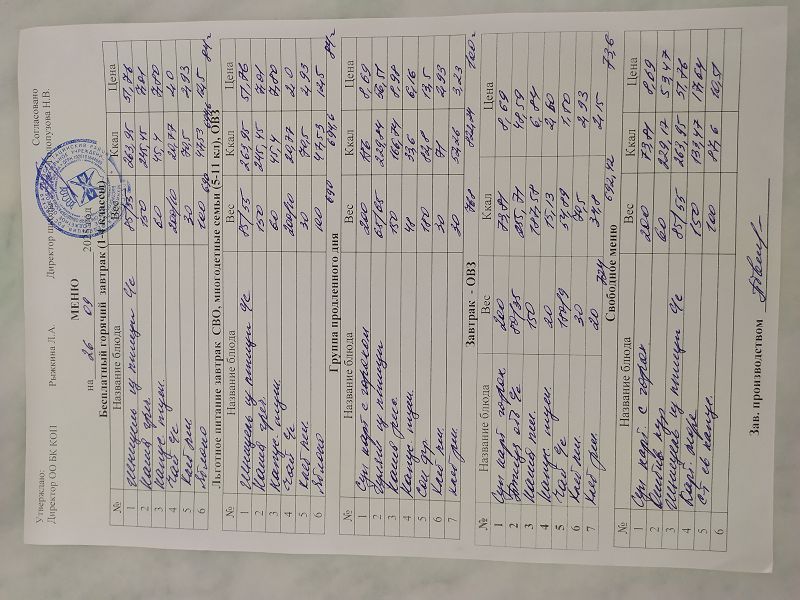 Утверждаю:
Согласовано
Директор ОО БК КОП Рыжкина Л.А. Директор Н.В.
МЕНЮ
на 26 09 2025 год
Бесплатный горячий завтрак (1-4 классов)
№ Название блюда Вес Ккал Цена
1 Шницель из птицы 85/35 263,95 51,76
2 Каша греч. 150 245,45 7,01
3 Капус туш. 60 45,4 7,80
4 Чай 200/10 20,77 2,0
5 Хлеб рж. 30 70,5 2,93
6 Яблоко 100 47,53 12,5
690 694,6 84-
Льготное питание завтрак СВО, многодетные семьи (5-11 кл), ОВЗ
№ Название блюда Вес Ккал Цена
1 Шницель из птицы 85/35 263,95 51,76
2 Каша греч. 150 245,45 7,01
3 Капус туш. 60 45,4 7,80
4 Чай 200/10 20,77 2,0
5 Хлеб рж. 30 70,5 2,93
6 Яблоко 100 47,53 12,5
690 694,6 84-
Группа продленного дня
№ Название блюда Вес Ккал Цена
1 Суп карт с горохом 200 8,69
2 из птицы
3 Каша рис. 150 166,74 8,98
4 Капус туш. 48
5 180 82,8 12,5
6 Хлеб пш. 30 71 2,93
7 Хлеб рж. 30 52,26 3,23
768 100-
Завтрак - ОВЗ
№ Название блюда Вес Ккал Цена
1 Суп карт горох 200 73,84 8,69
2 255,71 48,59
3 150 187,58 6,84
4 Капус туш. 20 15,13 2,60
5 Чай
6 Хлеб пш. 30 70,5 2,93
7 Хлеб рж. 20 34,8 2,15
724 692,42 73,6
Свободное меню
№ Название блюда Вес Ккал Цена
1 Суп карт. с горох 200 73,84 8,69
2 60 229,17 53,47
3 Шницель из птицы 85/35 263,95 51,76
4 Карт. пюре 150 133,47 17,64
5 св капус. 100 87,6 10,51
6
Зав. производством